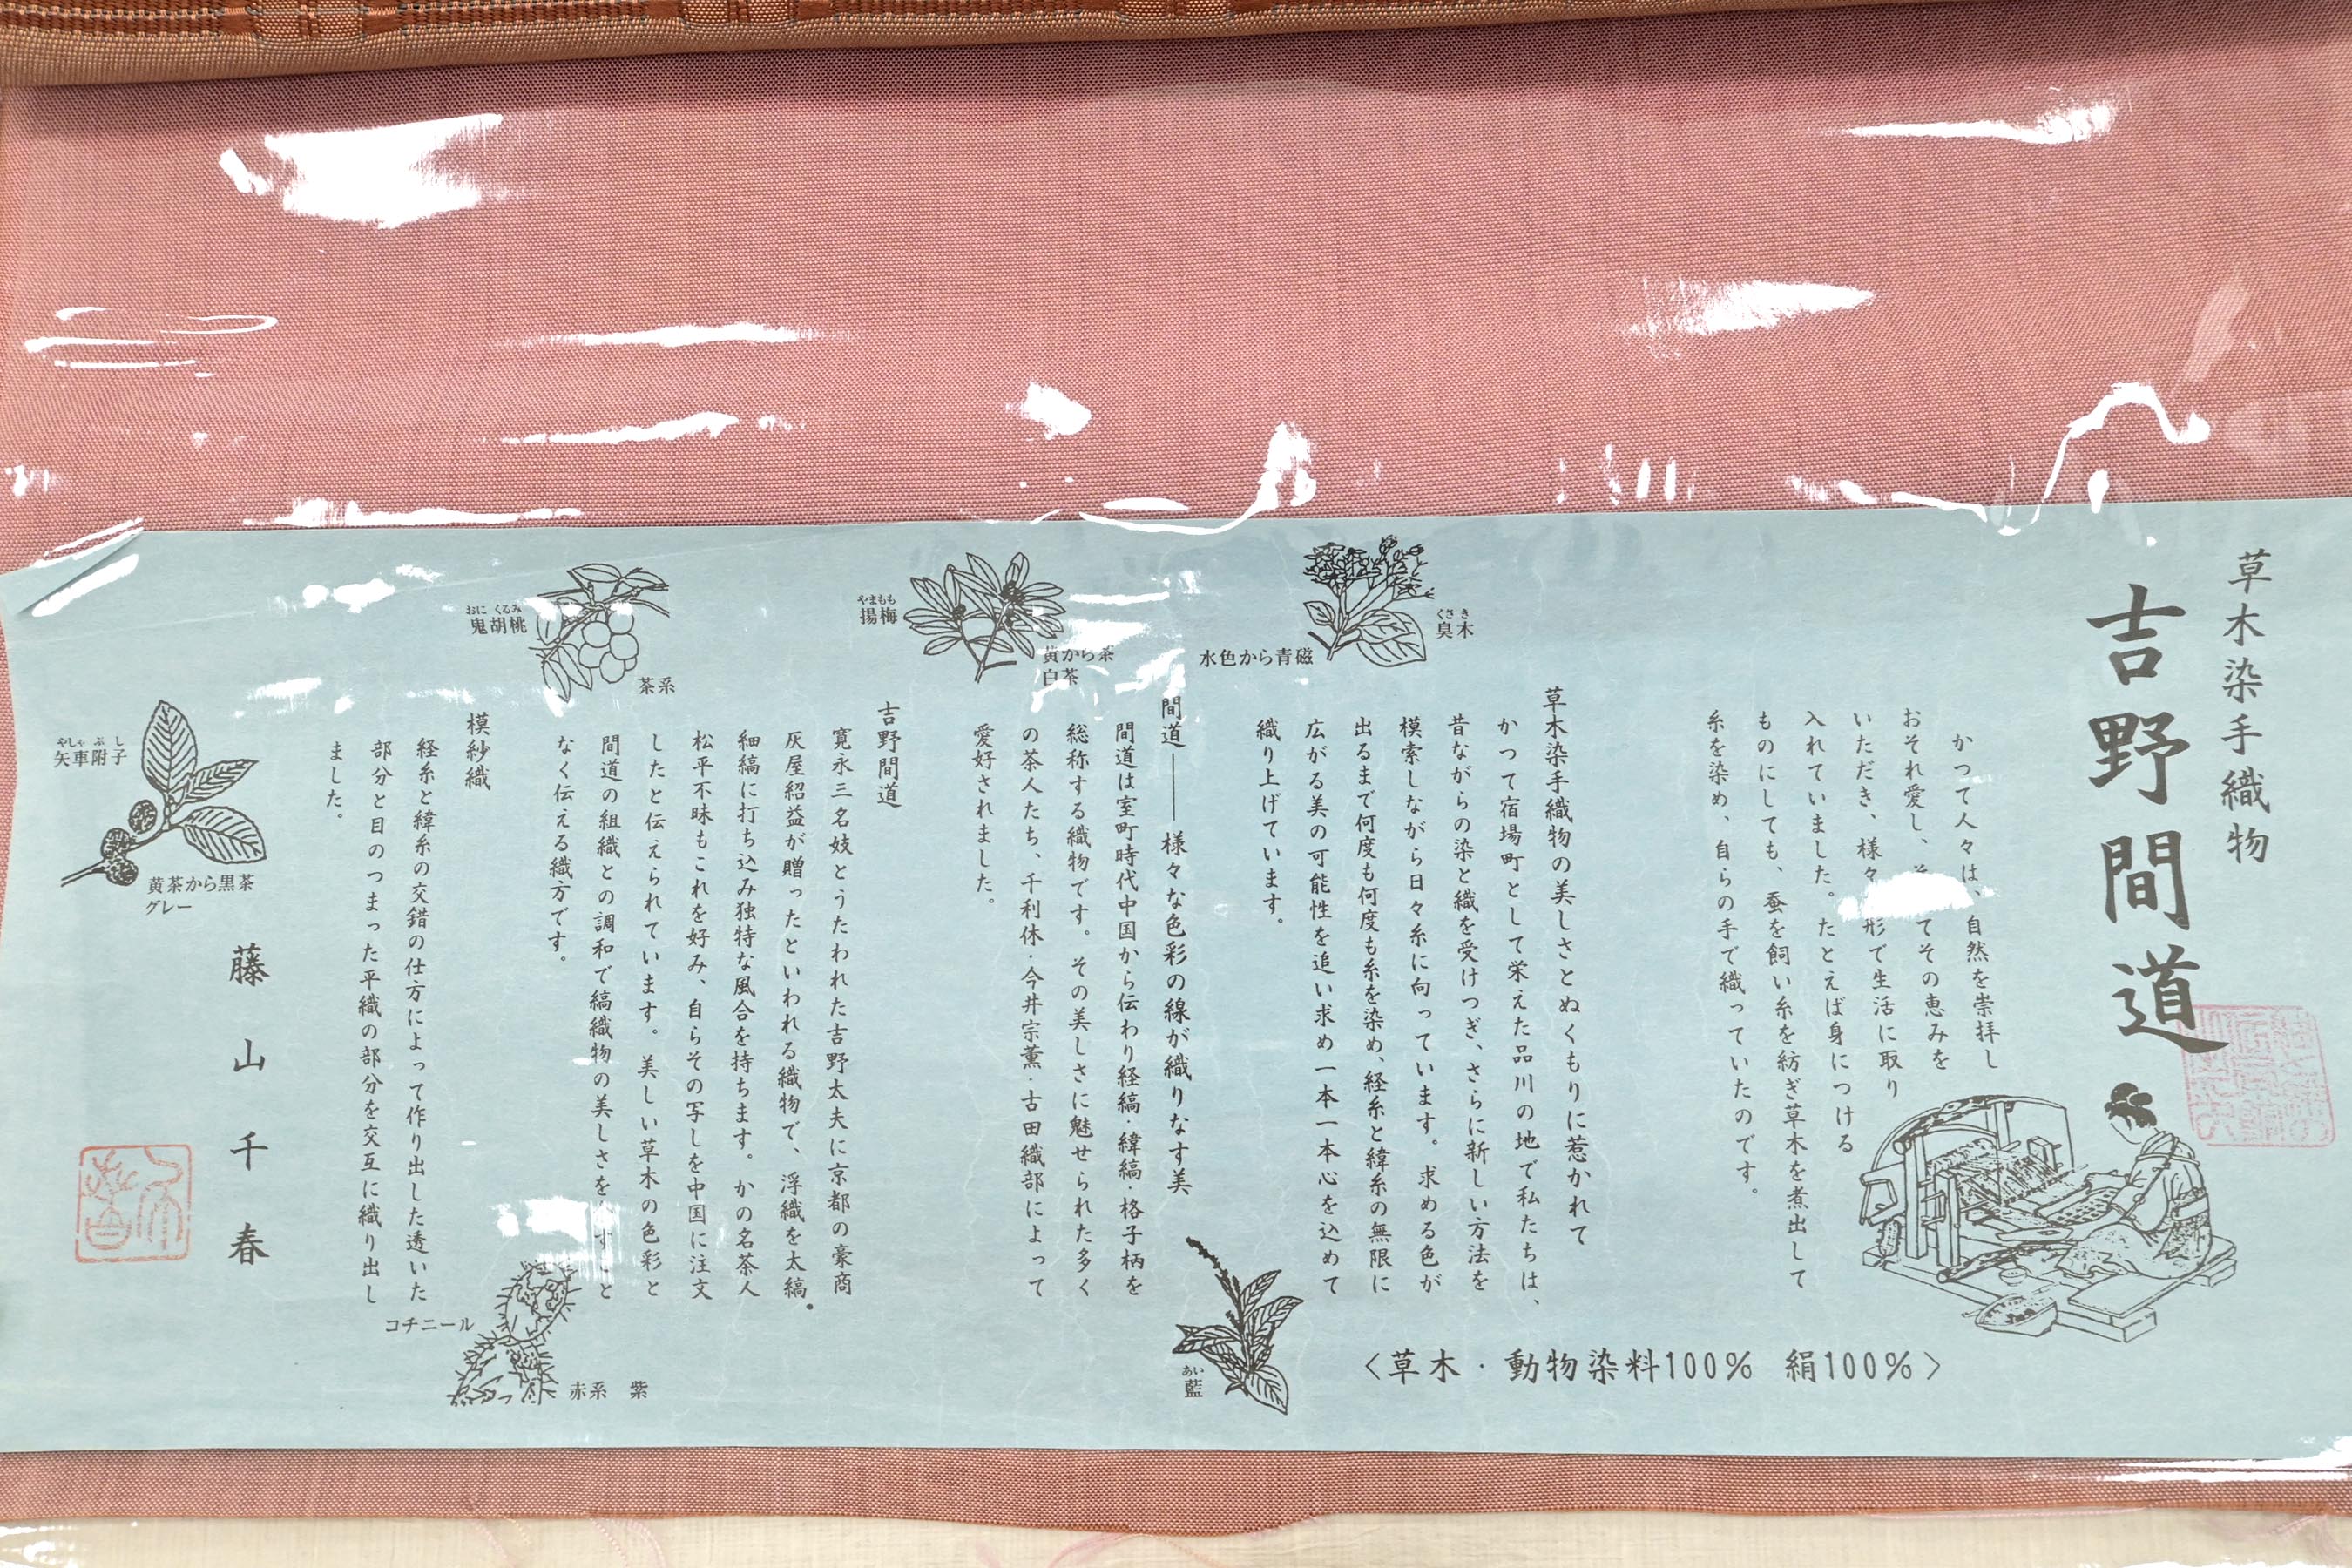 草木染手織物
吉野間道
かつて人々は、自然を崇拝し
おそれ愛し、そ てその恵みを
いただき、様々 形で生活に取り
入れていました。たとえば身につける
ものにしても、蚕を飼い糸を紡ぎ草木を煮出して
糸を染め、自らの手で織っていたのです。
〈草木・動物染料100% 絹100%〉
草木染手織物の美しさとぬくもりに惹かれて
かつて宿場町として栄えた品川の地で私たちは、
昔ながらの染と織を受けつぎ、さらに新しい方法を
模索しながら日々糸に向っています。求める色が
出るまで何度も何度も糸を染め、経糸と緯糸の無限に
広がる美の可能性を追い求め一本一本心を込めて
織り上げています。
くさき
臭木
水色から青磁
間道――様々な色彩の線が織りなす美
間道は室町時代中国から伝わり経縞・緯縞・格子柄を
総称する織物です。その美しさに魅せられた多く
の茶人たち、千利休・今井宗薫・古田織部によって
愛好されました。
あい
藍
やまもも
揚梅
黄から茶
白茶
吉野間道
寛永三名妓とうたわれた吉野太夫に京都の豪商
灰屋紹益が贈ったといわれる織物で、浮織を太縞・
細縞に打ち込み独特な風合を持ちます。かの名茶人
松平不昧もこれを好み、自らその写しを中国に注文
したと伝えられています。美しい草木の色彩と
間道の組織との調和で縞織物の美しさを すこと
なく伝える織方です。
おにくるみ
鬼胡桃
茶系
模紗織
経糸と緯糸の交錯の仕方によって作り出した透いた
部分と目のつまった平織の部分を交互に織り出し
ました。
コチニール
赤系 紫
やしゃぶし
矢車附子
黄茶から黒茶
グレー
藤山千春